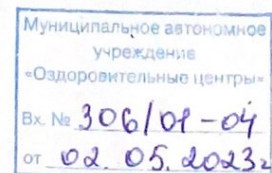 Муниципальное автономное
учреждение
«Оздоровительные центры»
Вх. № 306/01-04
от 02.05.2023г